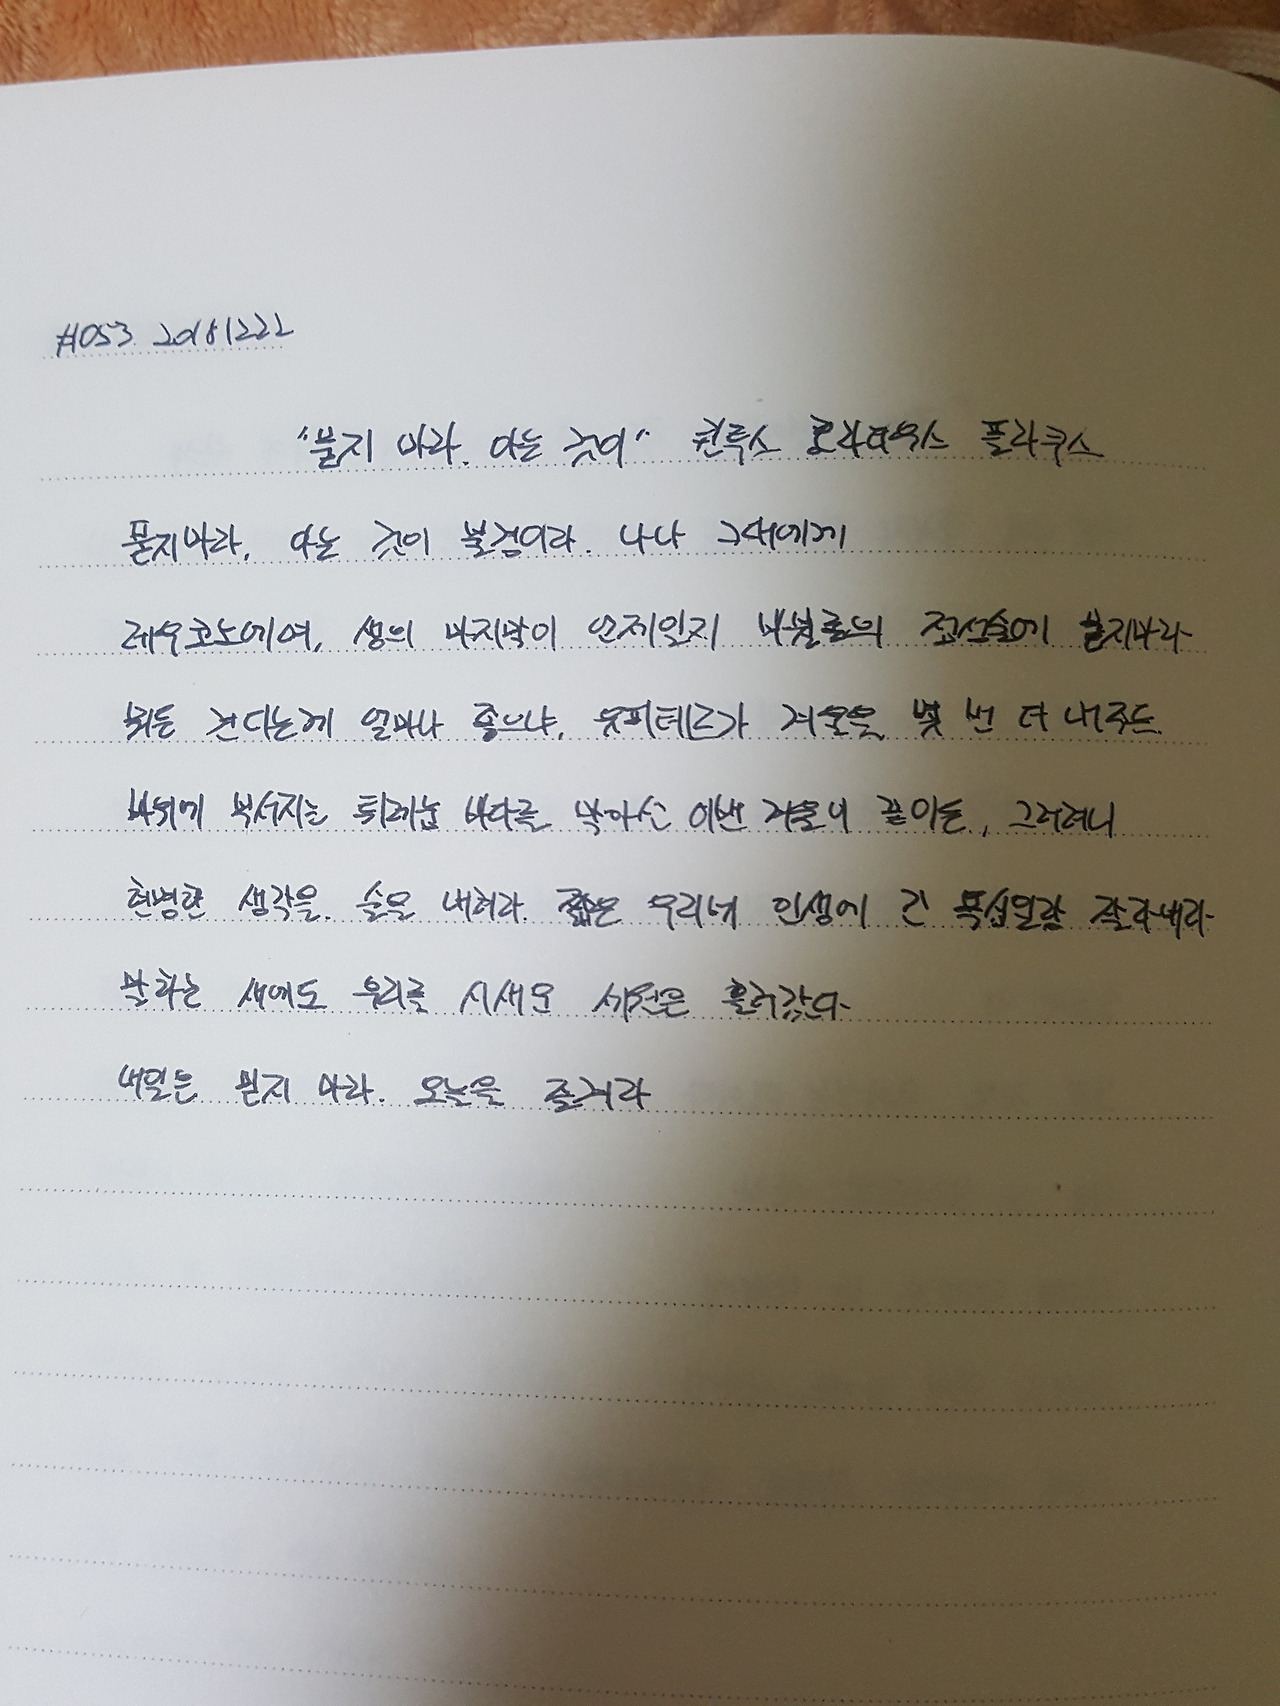 #053 20181222
"묻지 마라. 아는 것이" 퀸투스 호라티우스 플라쿠스
묻지마라, 아는 것이 불경이라. 나나 그대에게
레우코노에여, 생의 마지막이 언제일지 바빌론의 점성술에 묻지마라
뭐든 견디는게 얼마나 좋으냐. 윳피테르가 겨울을 몇 번 더 내주든
바위에 부서지는 튀레눔 바다를 막아선 이번 겨울이 끝이든, 그러려니
현명한 생각을. 술을 내려라. 짧은 우리네 인생에 긴 욕심일랑 잘라내라
말하는 새에도 우리를 시새운 세월은 흘러갔다
내일은 믿지 마라. 오늘을 즐겨라